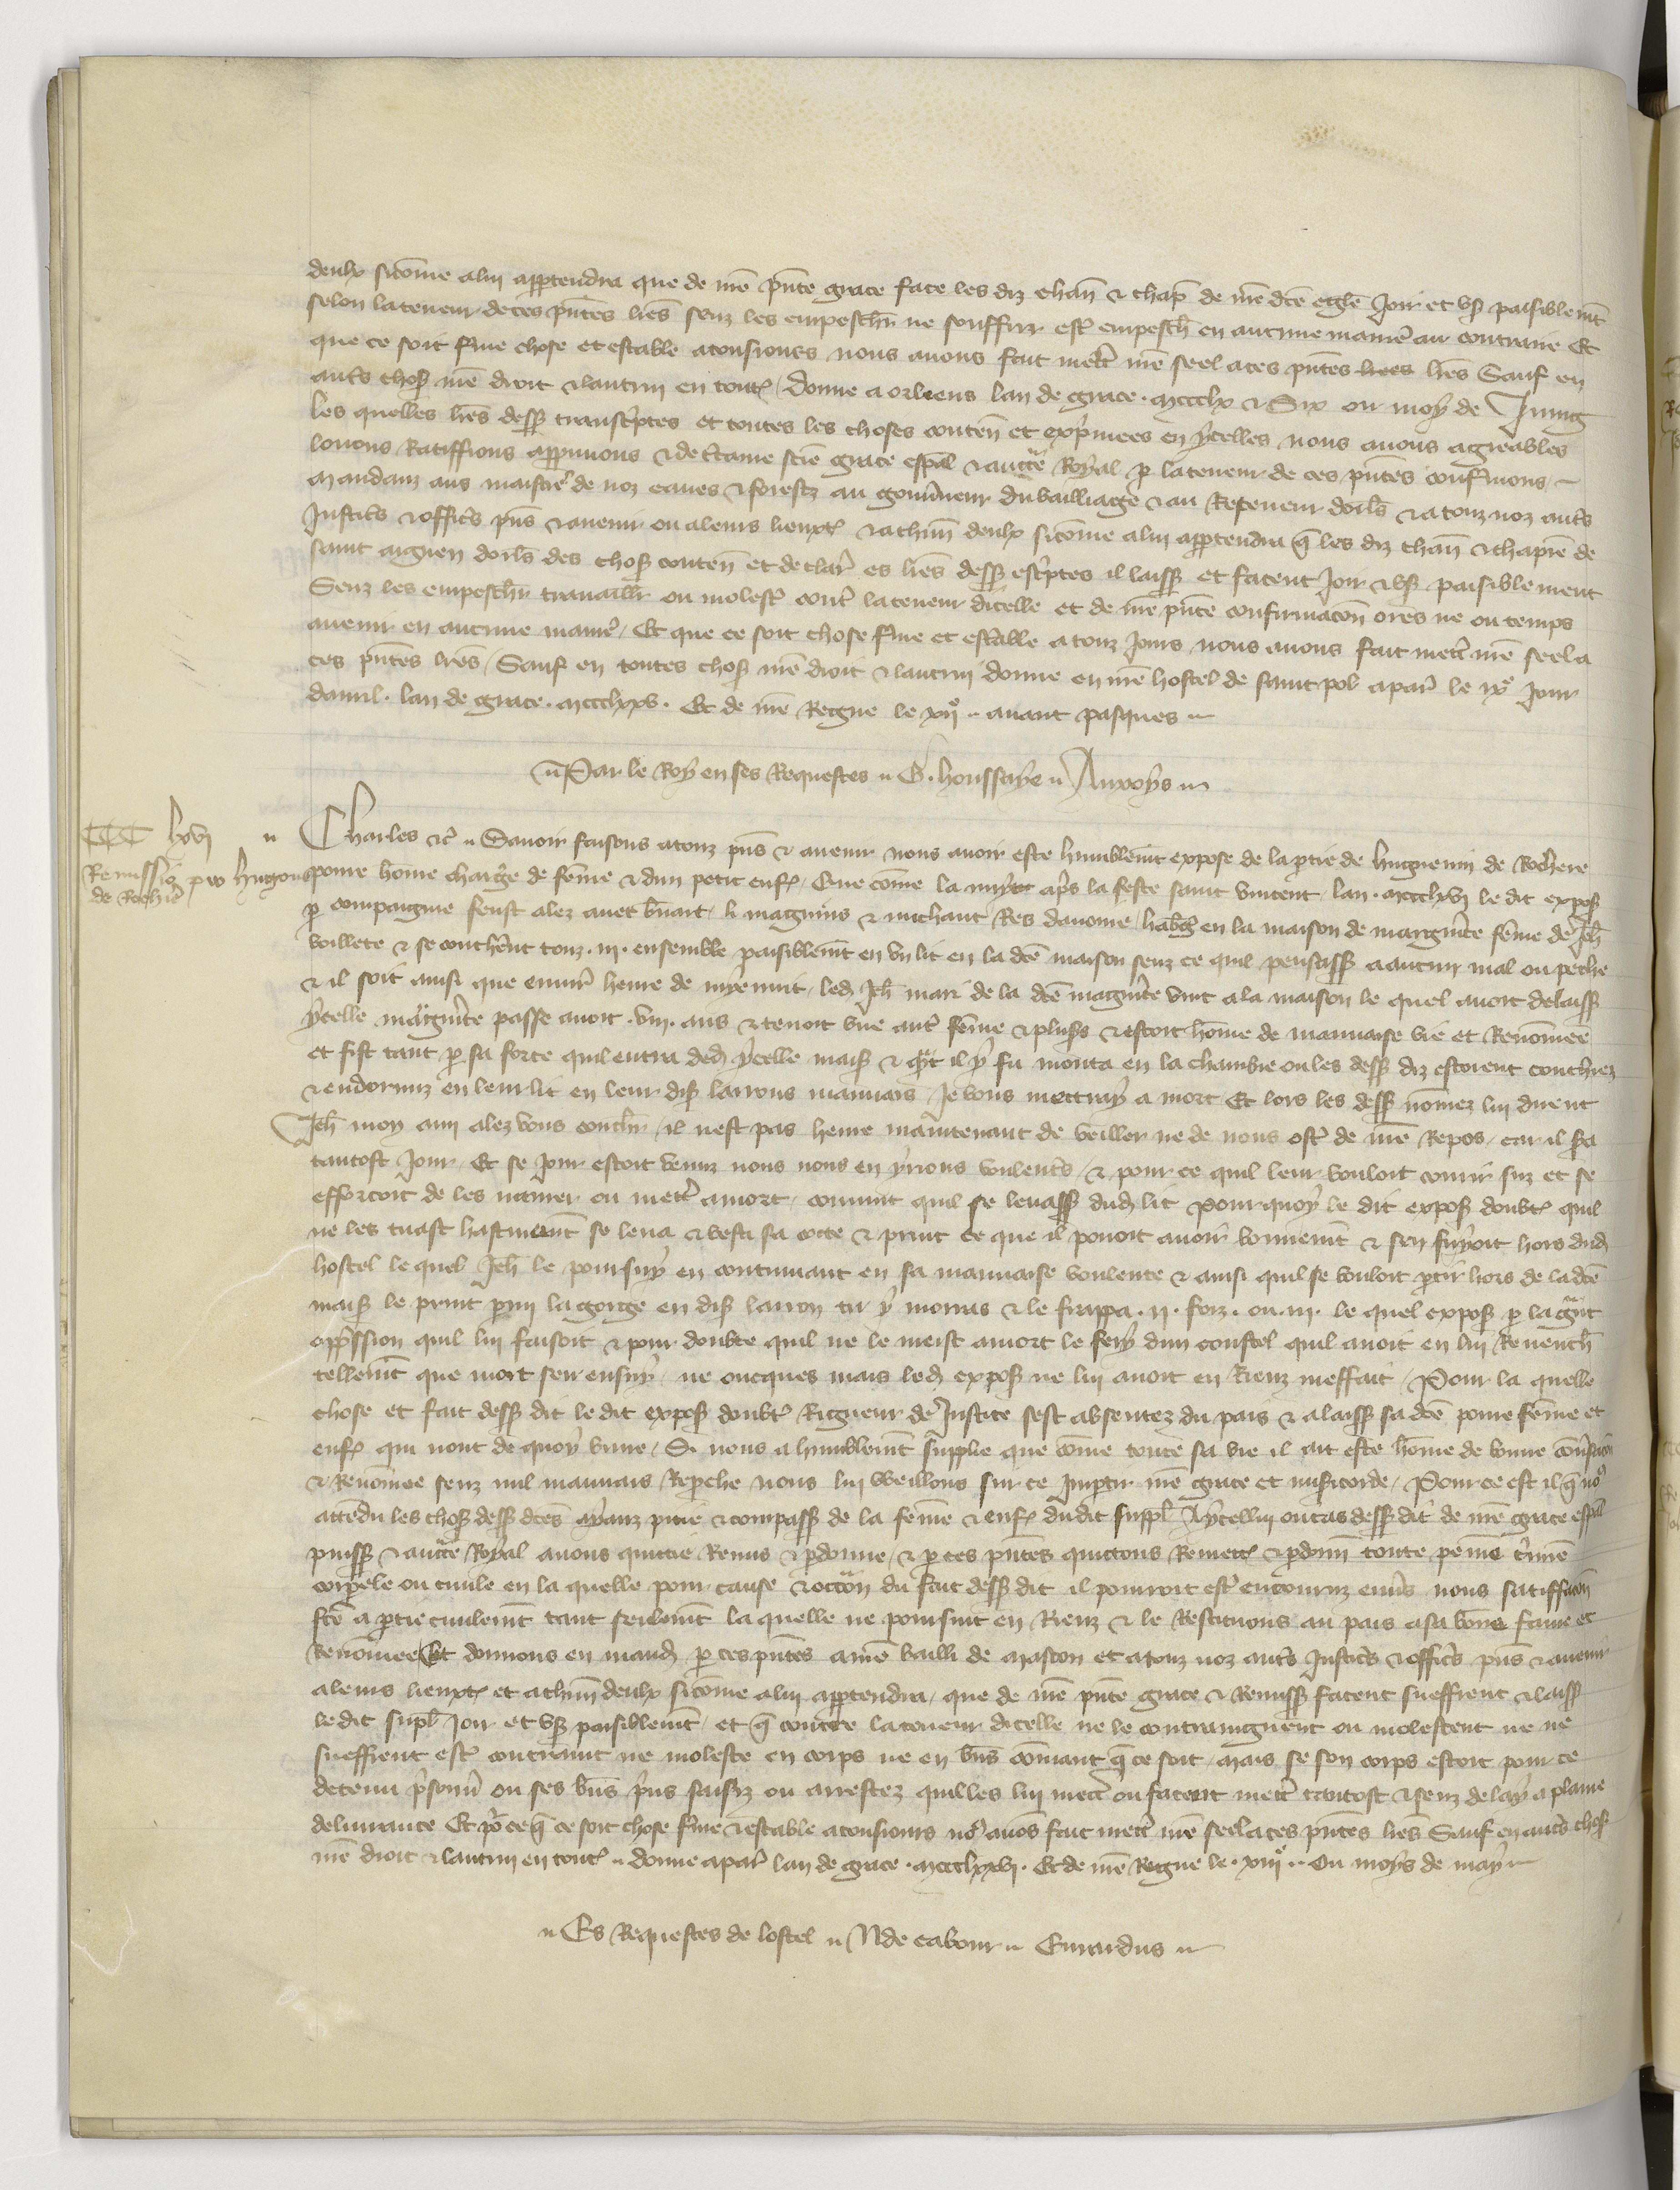 deulx sicome alui appartendra que de nre pnte grace face les diz chan & chap de nre dce egle Joir et us paisiblemt
selon la teneur de ces pntes lres senz les empeschr ne souffrir estr empesch en aucune manire au contraire Et
que ce soit ferme chose et estable atousiours nous avons fait mettr nre seel a ces pntes lres Sauf en
autres choses nre droit & lautrui en toutes Donne a orliens lan de grace mccclx & Six ou moys de Juing
les quelles lres dessus transcriptes et toutes les choses conten et exprimees en ycelles nous avons agreables
louons Ratiffions approuvons & de certaine scie grace especial & aucte Royal par la teneur de ces pntes confermons
Mandanz aus maistres de noz eaues & forestz au gouverneur du bailliage & au Receveur dorls & a touz noz autres
Justicrs & officrs pns & avenir ou a leurs lieuxt & a chun deulx sicome alui appartendra q les diz chan & chapie de
saint aignen dorls des choses conten et declarr es lres dessus escriptes il laissent et facent Joir & user paisiblement
Senz les empeschr travaillr ou molestr contr la teneur dicelle et de nre pnte confirmacon ores ne ou temps
avenir en aucune manire Et que ce soit chose ferme et estable a touz Jours nous avons fait mettr nre seel a
ces pntes lres Sauf en toutes choses nre droit & lautrui donne en nre hostel de saint pol a paris le ixe Jour
davril lan de grace mccclxxv Et de nre Regne le xiie avant pasques
Par le Roy en ses Requestes G. houssaye Anxoys
lxvi
Remissio pro hugone
de Rochire
Charles &c Savoir faisons a touz pns & avenir nous avoir este humblemt expose de la prtie de huguenin de Rochere
povre home charge de feme & dun petit enft Que come la nuyt aprs la feste saint vincent lan mccclxvi le dit expos
par compaignie feust alez avec benart li magnins & michaut Res davome habit en la maison de margurite feme de Jeh
voillete & se couchrent touz iii ensemble paisiblemt en un lit en la dce maison senz ce quil pensassent a aucun mal ou peche
& il soit ainsi que environ heure de myenuit led Jeh mari de la dce margurite vint a la maison le quel avoit delaissie
ycelle margurite passe avoit viii ans & tenoit une autr feme & plusrs & estoit home de mauvaise vie et Renomee
et fist tant par sa force quil entra ded ycelle mais & qt il y fu monta en la chambre ou les dessus diz estoient couchiez
& endormiz en leur lit en leur dis larrons mauvais Je vous mettray a mort Et lors les dessus nomez lui dirent
Jeh mon ami alez vous couchr il nest pas heure maintenant de veiller ne de nous ostr de nre Repos car il sera
tantost Jour Et se Jour estoit venuz nous nous en yrions voulentrs & pour ce quil leur vouloit courir sus et se
efforcoit de les navrer ou mettr a mort convint quil se levassent dud lit Pour quoy le dit expos doubtt quil
ne les tuast hastivemt se leva & vesti sa cotte & print ce que il povoit avoir bonnemt & sen fuyoit hors dud
hostel le quel Jeh le poursuy en continuant en sa mauvaise voulente & ainsi quil se vouloit prtir hors de la dce
mais le print parmi la gorge en dis larron tu y morras & le frappa ii foiz ou iii le quel expos par la grant
oppression quil lui faisoit & pour doubte quil ne le meist a mort le fery dun coustel quil avoit en lui Revench
tellemt que mort sen ensuy ne oncques mais led expos ne lui avoit en Riens meffait Pour la quelle
chose et fait dessus dit le dit expos doubtt Rigueur de Justice sest absentez du pais & a laissie sa dce povre feme et
enft qui nont de quoy vivre Si nous a humblemt supplie que come toute sa vie il ait este home de bonne convsacion
& Renomee senz nul mauvais Reproche nous lui vueillons sur ce Impartir nre grace et misicorde Pour ce est il q nous
attendu les choses dessus dces ayanz pitie & compassion de la feme & enft dudit suppl A ycellui ou cas dessus dit de nre grace espal
puissance & aucte Royal avons quictie Remis & pardonne & par ces pntes quictons Remett & pardonn toute peine crimine
corpele ou civile en la quelle pour cause & occon du fait dessus dit il pourroit estr encouruz envers nous satiffacon
fce a prtie civilemt tant seulemt la quelle ne poursuit en Riens & le Restituons au pais a sa bone fame et
Renomee Et donnons en mand par ces pntes a nre bailli de mascon et a touz noz autrs Justicrs & officrs pns & avenir
a leurs lieuxt et a chun deulx sicome alui appartendra que de nre pnte grace & Remission facent sueffrent & laissent
ledit suppl Joir et user paisiblemt et q contre la teneur dicelle ne le contraingnent ou molestent ne ne
sueffrent estr contraint ne moleste en corps ne en bns coment q ce soit mais se son corps estoit pour ce
detenu prisonr ou ses bns prins saisiz ou arrestez quil les lui mett ou facent mettr tantost & senz delay a plaine
delivrance Et pour ce q ce soit chose ferme & estable a tousiours nous avons fait mettr nre seel a ces pntes lres Sauf en autrs chos
nre droit & lautrui en toutt donne a paris lan de grace mccclxxvi Et de nre Regne le xiiie Ou moys de may
Es Requestes de lostel N de cabour Evrardus